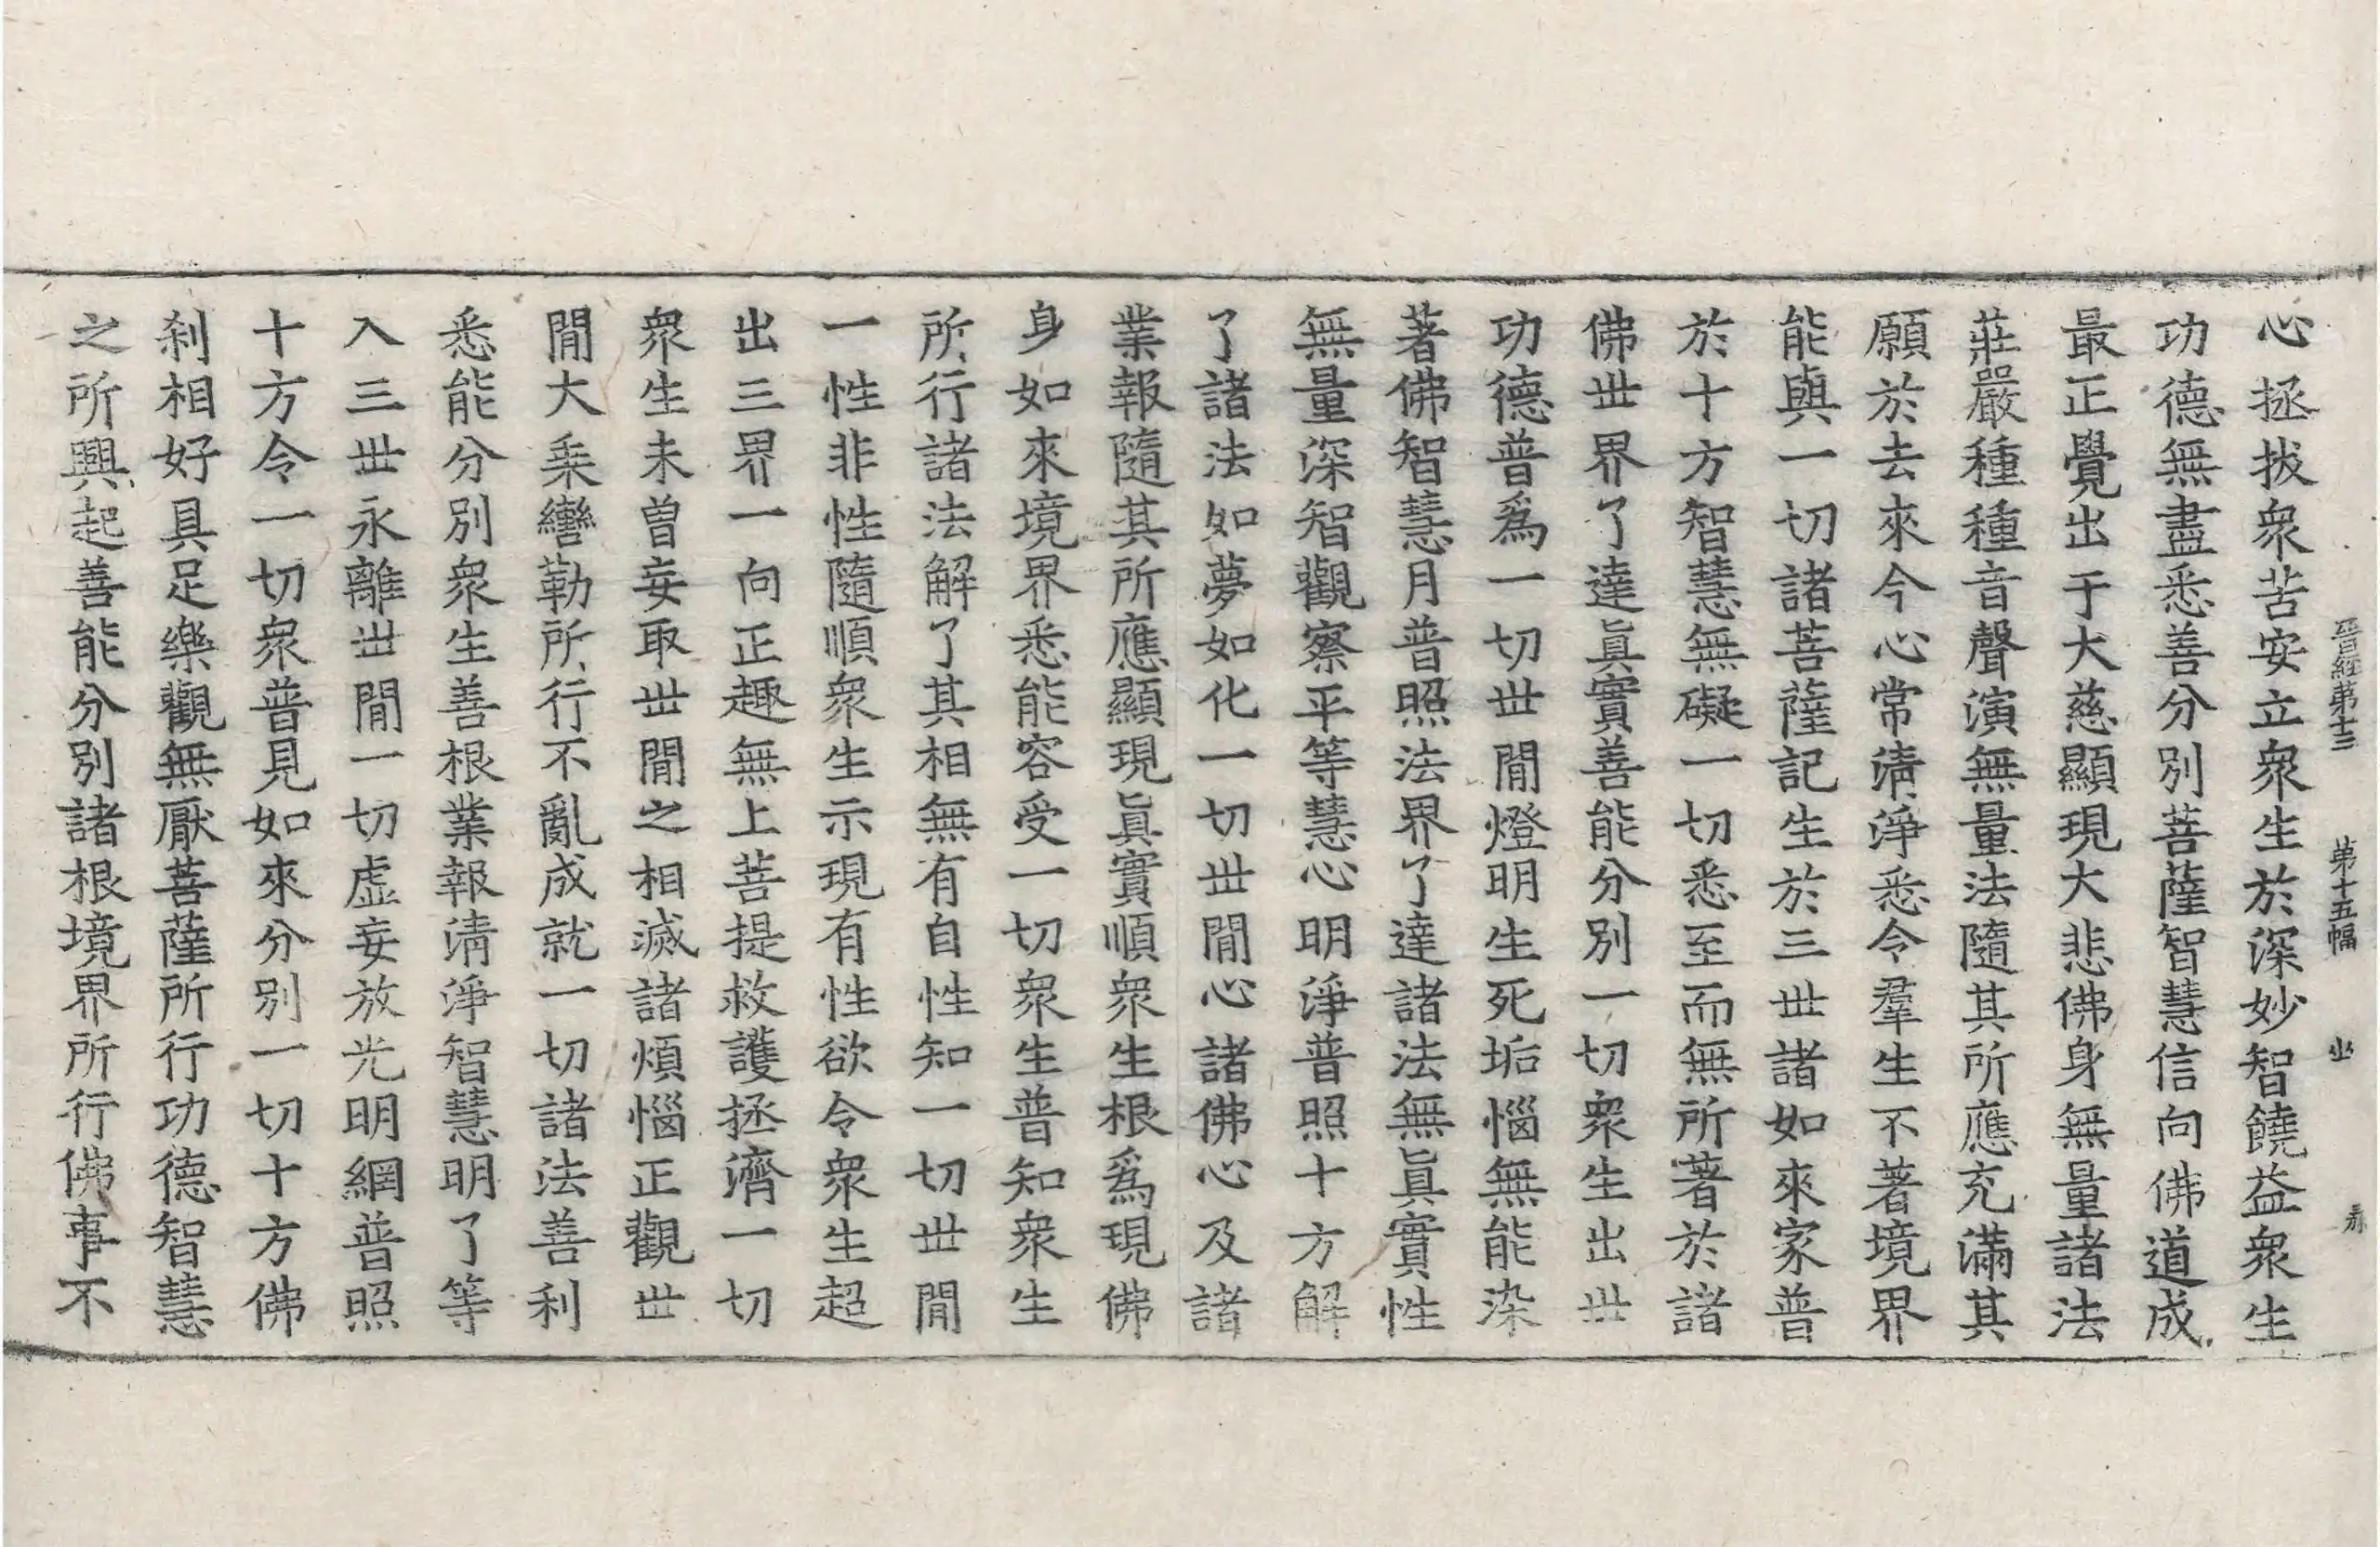 晉經第十三 第十五幅 㘴
心拯拔衆苦安立衆生於深妙智饒益衆生
功德無盡悉善分別菩薩智慧信向佛道成
最正覺出于大慈顯現大悲佛身無量諸法
莊嚴種種音聲演無量法隨其所應充滿其
願於去來今心常淸淨悉令羣生不著境界
能與一切諸菩薩記生於三丗諸如來家普
於十方智慧無礙一切悉至而無所著於諸
佛丗界了達眞實善能分別一切衆生出丗
功德普爲一切丗閒燈明生死垢惱無能染
著佛智慧月普照法界了達諸法無眞實性
無量深智觀察平等慧心明淨普照十方解
了諸法如夢如化一切丗閒心諸佛心及諸
業報隨其所應顯現眞實順衆生根爲現佛
身如來境界悉能容受一切衆生普知衆生
所行諸法解了其相無有自性知一切丗閒
一性非性隨順衆生示現有性欲令衆生超
出三界一向正趣無上菩提救護拯濟一切
衆生未曽妄取丗閒之相滅諸煩惱正觀丗
閒大乗轡勒所行不亂成就一切諸法善利
悉能分別衆生善根業報淸淨智慧明了等
入三丗永離丗閒一切虛妄放光明網普照
十方令一切衆普見如來分別一切十方佛
刹相好具足樂觀無厭菩薩所行功德智慧
之所興起善能分別諸根境界所行佛事不